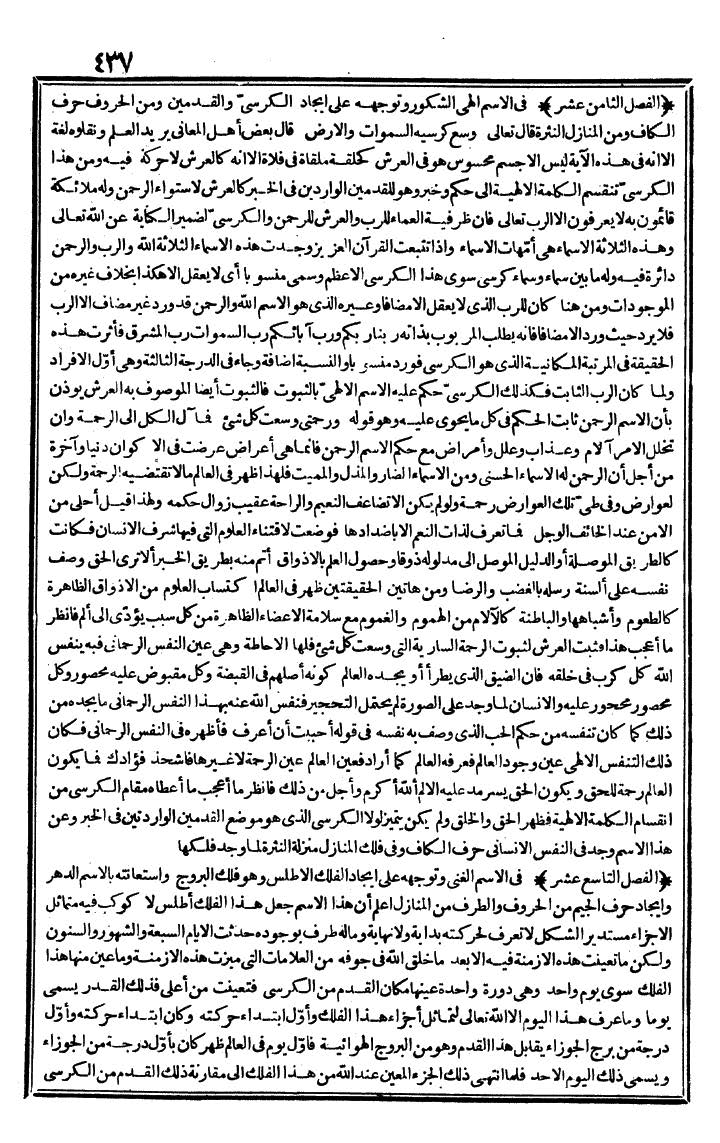 ٤٣٧
﴿الفصل الثامن عشر﴾ فى الاسم الهى الشكور وتوجهه على ايجاد الكرسىّ والقدمين ومن الحروف حرف
الكاف ومن المنازل النثرة قال تعالى وسع كرسيه السموات والارض قال بعض أهل المعانى يريد العلم ونقلوه لغة
الا انه فى هذه الآية ليس الا جسم محسوس هو فى العرش كحلقة ملقاة فى فلاة الا انه كالعرش لا حركة فيه ومن هذا
الكرسىّ تنقسم الكلمة الالهية الى حكم وخبر وهو للقدمين الواردين فى الخبر كالعرش لاستواء الرحمن وله ملائكة
قائمون به لا يعرفون الا الرب تعالى فان ظرفية العماء للرب والعرش للرحمن والكرسىّ لضمير الكناية عن الله تعالى
وهذه الثلاثة الاسماء هى أمّهات الاسماء واذا تتبعت القرآن العزيز وجدت هذه الاسماء الثلاثة الله والرب والرحمن
دائرة فيه وله ما بين سماء وسماء كرسى سوى هذا الكرسى الاعظم وسمى منسوبا أى لا يعقل الا هكذا بخلاف غيره من
الموجودات ومن هنا كان للرب الذى لا يعقل الا مضافا وغيره الذى هو الاسم الله والرحمن قد ورد غير مضاف الا الرب
فلا يرد حيث ورد الا مضافا فانه يطلب المربوب بذاته ربنا ربكم ورب آبائكم رب السموات رب المشرق فأثرت هذه
الحقيقة فى المرتبة المكانية الذى هو الكرسى فورد منسوبا والنسبة اضافة وجاء فى الدرجة الثالثة وهى أوّل الافراد
ولما كان الرب الثابت فكذلك الكرسىّ حكم عليه الاسم الالهىّ بالثبوت فالثبوت أيضا الموصوف به العرش يوذن
بأن الاسم الرحمن ثابت الحكم فى كل ما يحوى عليه وهو قوله ورحمتى وسعت كل شئ فمآل الكل الى الرحمة وان
تخلل الامر آلام وعذاب وعلل وأمراض مع حكم الاسم الرحمن فانما هى أعراض عرضت فى الاكوان دنيا وآخرة
من أجل أن الرحمن له الاسماء الحسنى ومن الاسماء الضار والمذل والمميت فلهذا ظهر فى العالم ما لا تقتضيه الرحمة ولكن
لعوارض وفى طىّ تلك العوارض رحمة ولو لم يكن الا تضاعف النعيم والراحة عقيب زوال حكمه ولهذا قيل أحلى من
الامن عند الخائف الوجل فما تعرف لذات النعم الا باضدادها فوضعت لاقتناء العلوم التى فيها شرف الانسان فكانت
كالطريق الموصلة أو الدليل الموصل الى مدلوله ذوقا وحصول العلم بالاذواق أتم منه بطريق الخبر ألا ترى الحق وصف
نفسه على ألسنة رسله بالغضب والرضا ومن هاتين الحقيقتين ظهر فى العالم اكتساب العلوم من الاذواق الظاهرة
كالطعوم وأشباهها والباطنة كالآلام من الهموم والغموم مع سلامة الاعضاء الظاهرة من كل سبب يؤدّى الى ألم فانظر
ما أعجب هذا فثبت العرش لثبوت الرحمة السارية التى وسعت كل شئ فلها الاحاطة وهى عين النفس الرحمانى فبه ينفس
الله كل كرب فى خلقه فان الضيق الذى يطرأ أو يجده العالم كونه أصلهم فى القبضة وكل مقبوض عليه محصور وكل
محصور محجور عليه والانسان لما وجد على الصورة لم يحتمل التحجير فنفس الله عنه بهذا النفس الرحمانى ما يجده من
ذلك كما كان تنفسه من حكم الحب الذى وصف به نفسه فى قوله أحببت أن أعرف فأظهره فى النفس الرحمانى فكان
ذلك التنفس الالهى عين وجود العالم فعرفه العالم كما أراد فعين العالم عين الرحمة لا غيرها فاشحذ فؤادك فما يكون
العالم رحمة للحق ويكون الحق يسرمد عليه الالم الله أكرم وأجل من ذلك فانظر ما أعجب ما أعطاه مقام الكرسى من
انقسام الكلمة الالهية فظهر الحق والخلق ولم يكن يتميز لولا الكرسى الذى هو موضع القدمين الواردتين فى الخبر وعن
هذا الاسم وجد فى النفس الانسانى حرف الكاف وفى فلك المنازل منزلة النثرة لما وجد فلكها
﴿الفصل التاسع عشر﴾ فى الاسم الغنى وتوجهه على ايجاد الفلك الاطلس وهو فلك البروج واستعانته بالاسم الدهر
وايجاد حرف الجيم من الحروف والطرف من المنازل اعلم أن هذا الاسم جعل هذا الفلك أطلس لا كوكب فيه متماثل
الاجزاء مستدير الشكل لا تعرف لحركته بداية ولا نهاية وما له طرف بوجوده حدثت الايام السبعة والشهور والسنون
ولكن ما تعينت هذه الازمنة فيه الا بعد ما خلق الله فى جوفه من العلامات التى ميزت هذه الازمنة وما عين منها هذا
الفلك سوى يوم واحد وهى دورة واحدة عينها مكان القدم من الكرسى فتعينت من أعلى فذلك القدر يسمى
يوما وما عرف هذا اليوم الا الله تعالى لتماثل أجزاء هذا الفلك وأوّل ابتداء حركته وكان ابتداء حركته وأوّل
درجة من برج الجوزاء يقابل هذا القدم وهو من البروج الهوائية فاوّل يوم فى العالم ظهر كان بأوّل درجة من الجوزاء
ويسمى ذلك اليوم الاحد فلما انتهى ذلك الجزء المعين عند الله من هذا الفلك الى مقارنة ذلك القدم من الكرسى